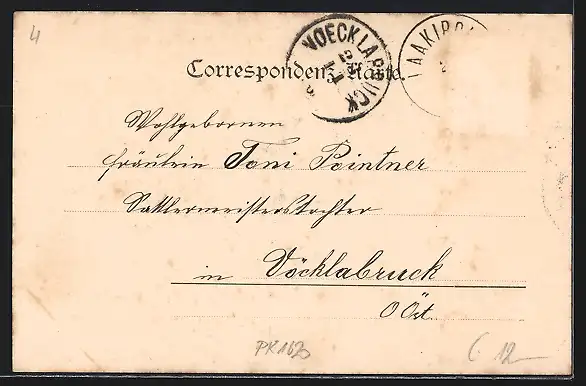 4
VOECKLABRUCK
LAAKIR
Correspondenz-Karte.
Wohlgebornen
Fräulein Toni Pointner
Sattlermeisterstochter
in Vöcklabruck
O Öst.
PK162
C 12